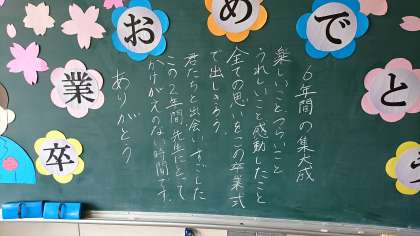 卒業おめでとう
6年間の集大成
楽しいことつらいこと
うれしいこと感動したこと
全ての思いをこの卒業式
で出しきろう
君たちと出会いすごした
この2年間、先生にとって
かけがえのない時間です。
ありがとう